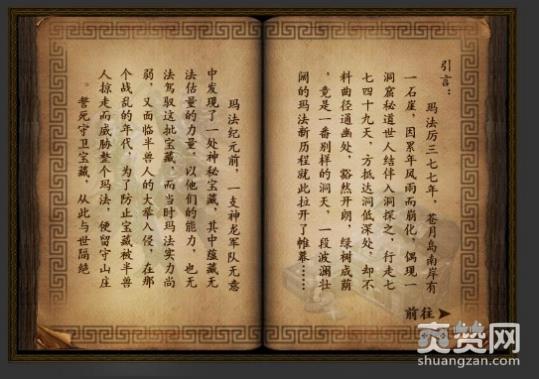 引言：
玛法厉三七七年，苍月岛南岸有
一石崖，因累年风雨而崩化，偶现一
洞窟秘道世人结伴入洞探之，行走七
七四十九天，方抵达洞低深处，却不
料曲径通幽处，豁然开朗，绿树成荫
，竟是一番别样的洞天，一段波澜壮
阔的玛法新历程就此拉开了帷幕……
前往
玛法纪元前，一支神龙军队无意
中发现了一处神秘宝藏，其中蕴藏无
法估量的力量，以他们的能力，也无
法驾驭这批宝藏，而当时玛法实力尚
弱，又面临半兽人的大举入侵，在那
个战乱的年代，为了防止宝藏被半兽
人掠走而威胁整个玛法，便留守山庄
。誓死守卫宝藏，从此与世隔绝
爽赞网
shuangzan.com